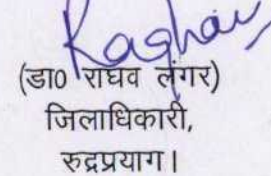 Raghav
(डा0 राघव लंगर)
जिलाधिकारी,
रुद्रप्रयाग।